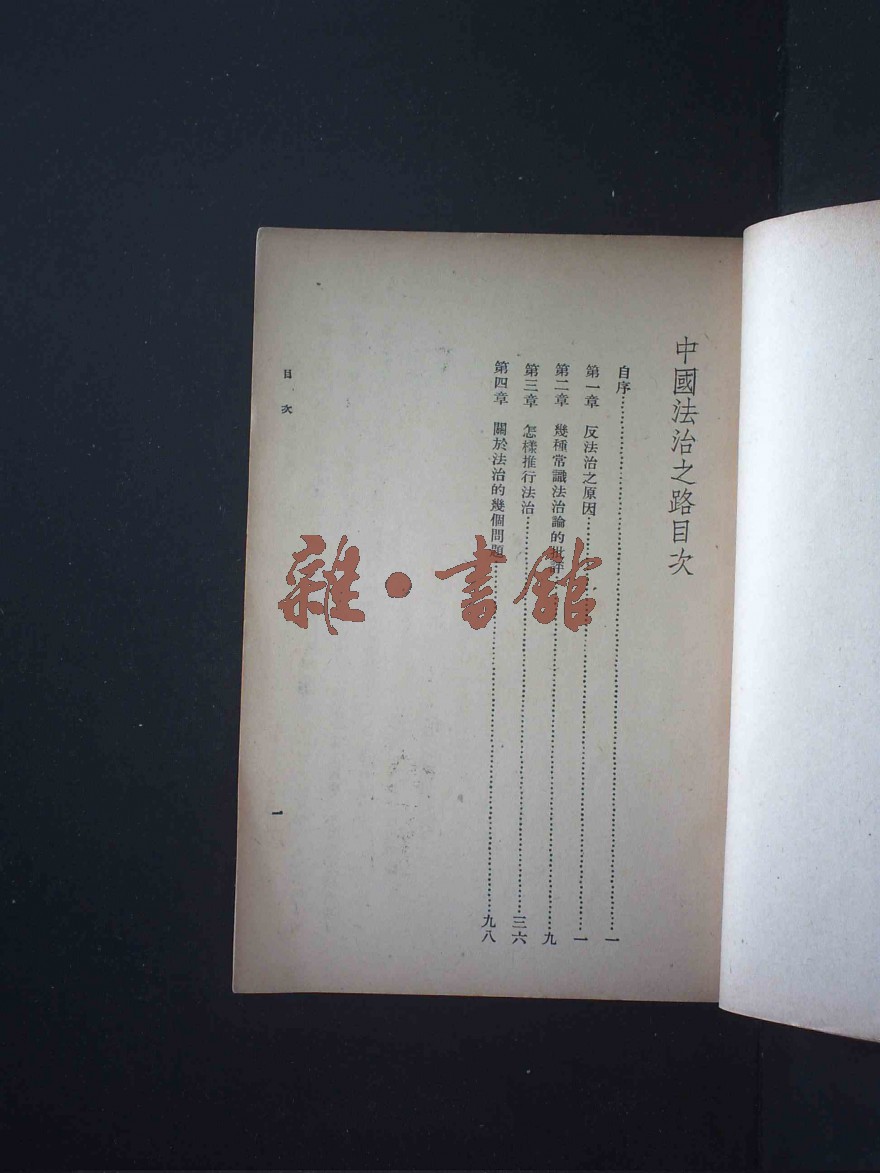 中國法治之路目次
自序……一
第一章　反法治之原因……一
第二章　幾種常識法治論的批評……九
第三章　怎樣推行法治……三六
第四章　關於法治的幾個問題……九八
目次
一
雜·書館